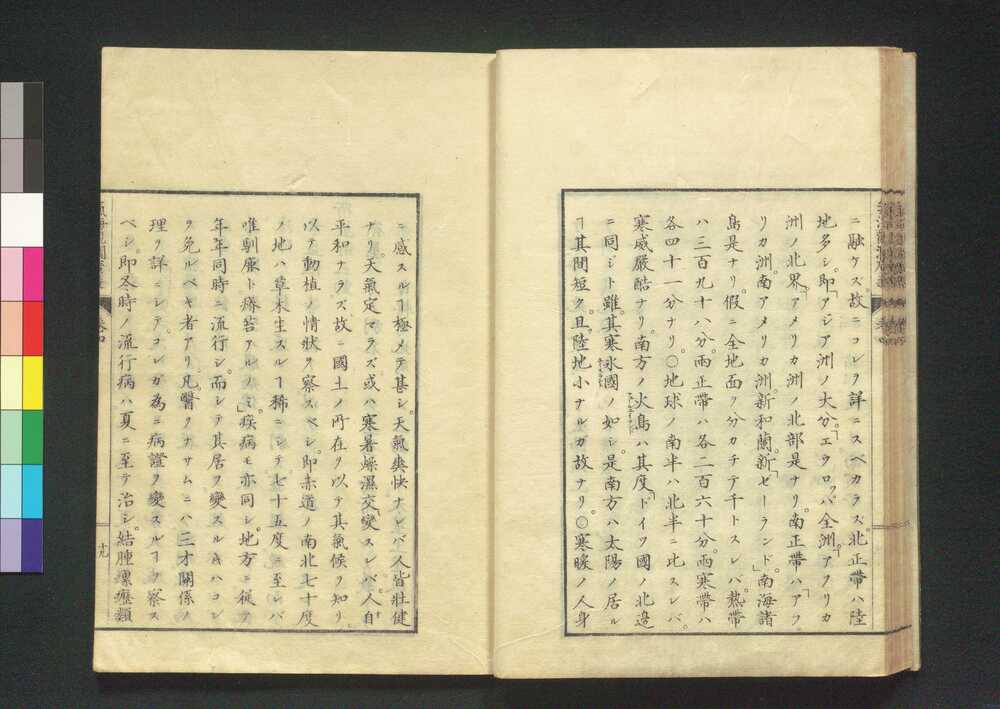 ニ融ケズ。故ニコレヲ詳ニスベカラズ北正帶ハ陸
地多シ。即「アジア洲ノ大分。「エウロッパ全洲。「アフリカ
洲ノ北界。「アメリカ洲ノ北部是ナリ。南正帶ハ「アフ
リカ洲。南アメリカ洲新和蘭。新「ゼーランド」。南海諸
島是ナリ。假ニ全地面ヲ分カチテ千トスレバ。熱帶
ハ三百九十八分。兩正帶ハ各二百六十分。兩寒帶ハ
各四十一分ナリ。○地球ノ南半ハ北半ニ比スレバ。
寒威嚴酷ナリ。南方ノ火島ハ其度「ドイツ國ノ北邊
ニ同ジト雖。其寒氷國ノ如シ。是南方ハ太陽ノ居ル
ヿ其間短ク。且陸地小ナルガ故ナリ。○寒暖ノ人身
ニ感スルヿ極メテ甚シ。天氣爽快ナレバ人皆壯健
ナリ。天氣定マラズ。或ハ寒暑燥濕交變スレバ。人自
平和ナラズ故ニ國土ノ所在ヲ以テ其氣候ヲ知リ。
以テ動植ノ情狀ヲ察スベシ。即赤道ノ南北七十度
ノ地ハ草木生スルヿ稀ニシテ。七十五度ニ至レバ
唯馴鹿ト蘚苔アルノミ。疾病モ亦同シ。地方ニ從テ
年年同時ニ流行シ。而シテ其居ヲ變スル片ハコレ
ヲ免ルベキ者アリ。凡醫ヲナサムニハ三才關係ノ
理ヲ詳ニシテ。コレガ為ニ病證ヲ變スルヿヲ察ス
ベシ。即冬時ノ流行病ハ夏ニ至テ治シ。結腫瘰癧類
卷四
十九